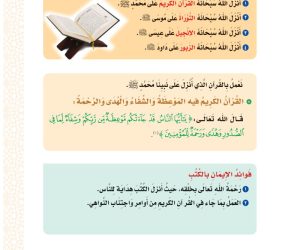 ١ أَنْزَلَ اللهُ سُبْحَانَهُ القُرآنَ الكَرِيمَ عَلَى مُحَمَّدٍ ﷺ.
٢ أَنْزَلَ اللهُ سُبْحَانَهُ التَّوْرَاةَ عَلَى مُوسَى ﷺ.
٣ أَنْزَلَ اللهُ سُبْحَانَهُ الإِنْجِيلَ عَلَى عِيسَى ﷺ.
٤ أَنْزَلَ اللهُ سُبْحَانَهُ الزَّبُورَ عَلَى دَاودَ ﷺ.
نَعْمَلُ بِالقُرآنِ الَّذِي أُنْزِلَ عَلَى نَبِيِّنَا مُحَمَّدٍ ﷺ.
القُرآنُ الكَرِيمُ فِيهِ المَوْعِظَةُ وَالشِّفَاءُ وَالهُدَى وَالرَّحْمَةُ:
قَالَ اللهُ تَعَالَى: ﴿يَٰٓأَيُّهَا ٱلنَّاسُ قَدْ جَآءَتْكُم مَّوْعِظَةٌ مِّن رَّبِّكُمْ وَشِفَآءٌ لِّمَا فِي
ٱلصُّدُورِ وَهُدًى وَرَحْمَةٌ لِّلْمُؤْمِنِينَ﴾
فَوَائِدُ الإِيمَانِ بِالكُتُبِ
١ رَحْمَةُ اللهِ تَعَالَى بِخَلْقِهِ، حَيْثُ أَنْزَلَ الكُتُبَ هِدَايَةً لِلنَّاسِ.
٢ العَمَلُ بِمَا جَاءَ فِي القُرآنِ الكَرِيمِ مِنْ أَوَامِرَ وَاجْتِنَابِ النَّوَاهِي.